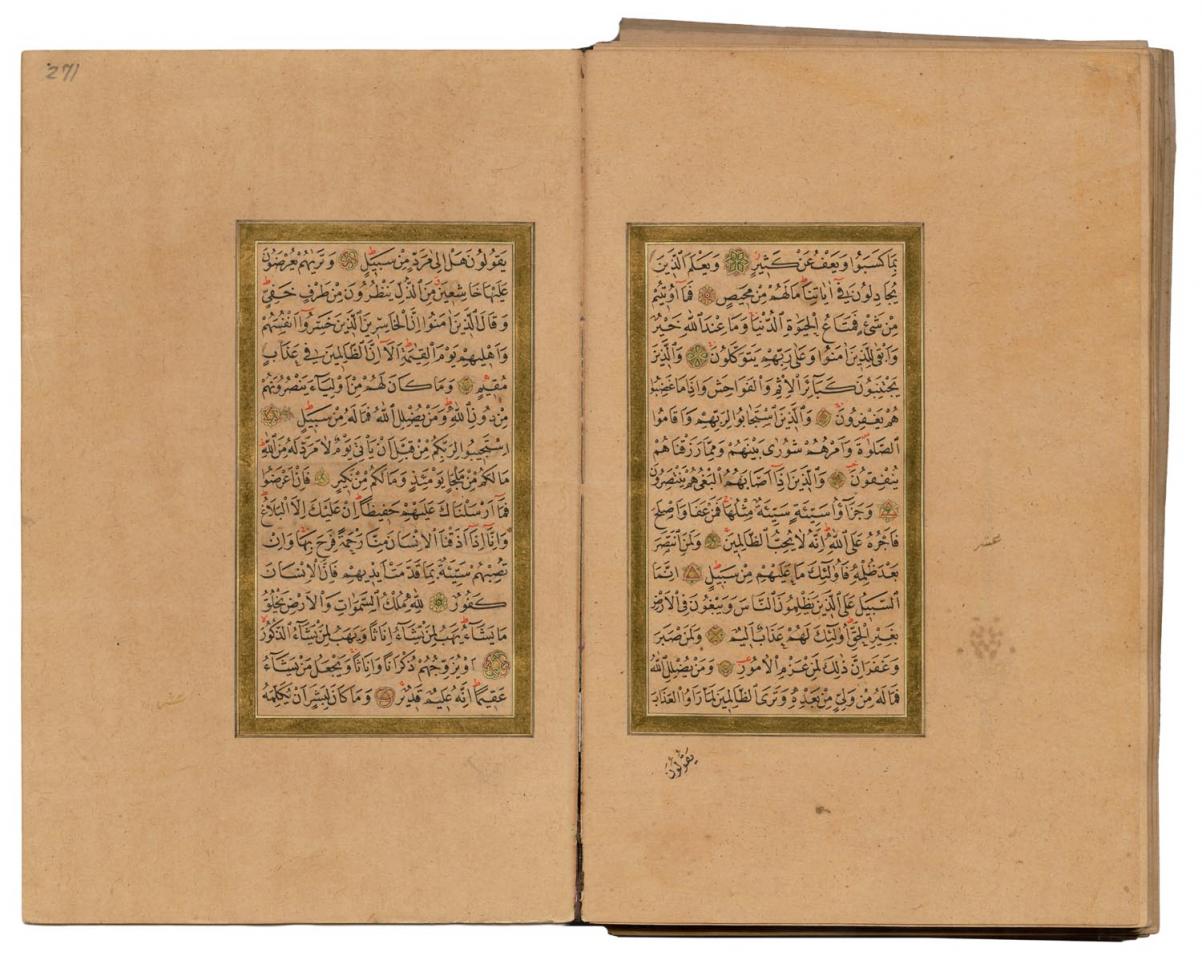 بِمَا كَسَبُوا وَيَعْفُ عَنْ كَثِيرٍ وَيَعْلَمَ الَّذِينَ
يُجَادِلُونَ فِٓى اٰيَاتِنَا مَا لَهُمْ مِنْ مَحِيصٍ فَمَٓا اُوتِيتُمْ
مِنْ شَىْءٍ فَمَتَاعُ الْحَيٰوةِ الدُّنْيَا وَمَا عِنْدَ اللّٰهِ خَيْرٌ
وَاَبْقٰى لِلَّذِينَ اٰمَنُوا وَعَلٰى رَبِّهِمْ يَتَوَكَّلُونَ وَالَّذِينَ
يَجْتَنِبُونَ كَبَٓائِرَ الْاِثْمِ وَالْفَوَاحِشَ وَاِذَا مَا غَضِبُوا
هُمْ يَغْفِرُونَ وَالَّذِينَ اسْتَجَابُوا لِرَبِّهِمْ وَاَقَامُوا
الصَّلٰوةَ وَاَمْرُهُمْ شُورٰى بَيْنَهُمْ وَمِمَّا رَزَقْنَاهُمْ
يُنْفِقُونَ وَالَّذِينَ اِذَٓا اَصَابَهُمُ الْبَغْىُ هُمْ يَنْتَصِرُونَ
وَجَزٰٓؤُا سَيِّئَةٍ سَيِّئَةٌ مِثْلُهَا فَمَنْ عَفَا وَاَصْلَحَ
فَاَجْرُهُ عَلَى اللّٰهِ اِنَّهُ لَا يُحِبُّ الظَّالِمِينَ وَلَمَنِ انْتَصَرَ
بَعْدَ ظُلْمِهِ فَاُولٰٓئِكَ مَا عَلَيْهِمْ مِنْ سَبِيلٍ اِنَّمَا
السَّبِيلُ عَلَى الَّذِينَ يَظْلِمُونَ النَّاسَ وَيَبْغُونَ فِى الْاَرْضِ
بِغَيْرِ الْحَقِّ اُولٰٓئِكَ لَهُمْ عَذَابٌ اَلِيمٌ وَلَمَنْ صَبَرَ
وَغَفَرَ اِنَّ ذٰلِكَ لَمِنْ عَزْمِ الْاُمُورِ وَمَنْ يُضْلِلِ اللّٰهُ
فَمَا لَهُ مِنْ وَلِىٍّ مِنْ بَعْدِهِ وَتَرَى الظَّالِمِينَ لَمَّا رَاَوُا الْعَذَابَ
يَقُولُونَ
عشر
271
يَقُولُونَ هَلْ اِلٰى مَرَدٍّ مِنْ سَبِيلٍ وَتَرٰيهُمْ يُعْرَضُونَ
عَلَيْهَا خَاشِعِينَ مِنَ الذُّلِّ يَنْظُرُونَ مِنْ طَرْفٍ خَفِىٍّ
وَقَالَ الَّذِينَ اٰمَنُٓوا اِنَّ الْخَاسِرِينَ الَّذِينَ خَسِرُٓوا اَنْفُسَهُمْ
وَاَهْلِيهِمْ يَوْمَ الْقِيٰمَةِ اَلَٓا اِنَّ الظَّالِمِينَ فِى عَذَابٍ
مُقِيمٍ وَمَا كَانَ لَهُمْ مِنْ اَوْلِيَٓاءَ يَنْصُرُونَهُمْ
مِنْ دُونِ اللّٰهِ وَمَنْ يُضْلِلِ اللّٰهُ فَمَا لَهُ مِنْ سَبِيلٍ
اِسْتَجِيبُوا لِرَبِّكُمْ مِنْ قَبْلِ اَنْ يَأْتِىَ يَوْمٌ لَا مَرَدَّ لَهُ مِنَ اللّٰهِ
مَا لَكُمْ مِنْ مَلْجَأٍ يَوْمَئِذٍ وَمَا لَكُمْ مِنْ نَكِيرٍ فَاِنْ اَعْرَضُوا
فَمَٓا اَرْسَلْنَاكَ عَلَيْهِمْ حَفِيظًا اِنْ عَلَيْكَ اِلَّا الْبَلَاغُ
وَاِنَّٓا اِذَٓا اَذَقْنَا الْاِنْسَانَ مِنَّا رَحْمَةً فَرِحَ بِهَا وَاِنْ
تُصِبْهُمْ سَيِّئَةٌ بِمَا قَدَّمَتْ اَيْدِيهِمْ فَاِنَّ الْاِنْسَانَ
كَفُورٌ لِلّٰهِ مُلْكُ السَّمٰوَاتِ وَالْاَرْضِ يَخْلُقُ
مَا يَشَٓاءُ يَهَبُ لِمَنْ يَشَٓاءُ اِنَاثًا وَيَهَبُ لِمَنْ يَشَٓاءُ الذُّكُورَ
اَوْ يُزَوِّجُهُمْ ذُكْرَانًا وَاِنَاثًا وَيَجْعَلُ مَنْ يَشَٓاءُ
عَقِيمًا اِنَّهُ عَلِيمٌ قَدِيرٌ وَمَا كَانَ لِبَشَرٍ اَنْ يُكَلِّمَهُ